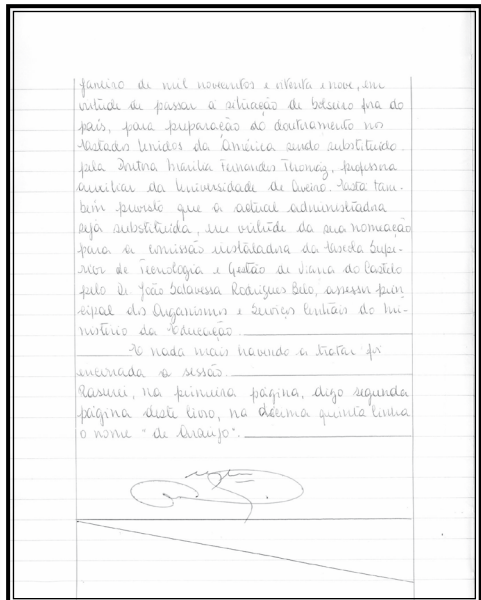 janeiro de mil novecentos e oitenta e nove, em
virtude de passar à situação de bolseiro fora do
país, para preparação do doutoramento nos
Estados Unidos da América sendo substituído
pela Doutora Marília Fernandes Thomaz, professora
auxiliar da Universidade de Aveiro. Está tam-
bém previsto que a actual administradora
seja substituída, em virtude da sua nomeação
para a comissão instaladora da Escola Supe-
rior de Tecnologia e Gestão de Viana do Castelo
pelo Dr João Rodrigues Belo, assessor prin-
cipal dos Organismos e Serviços Centrais do Mi-
nistério da Educação.
E nada mais havendo a tratar foi
encerrada a sessão.
Rasurei, na primeira página, digo segunda
página deste livro, na décima quinta linha
o nome "de Araújo".